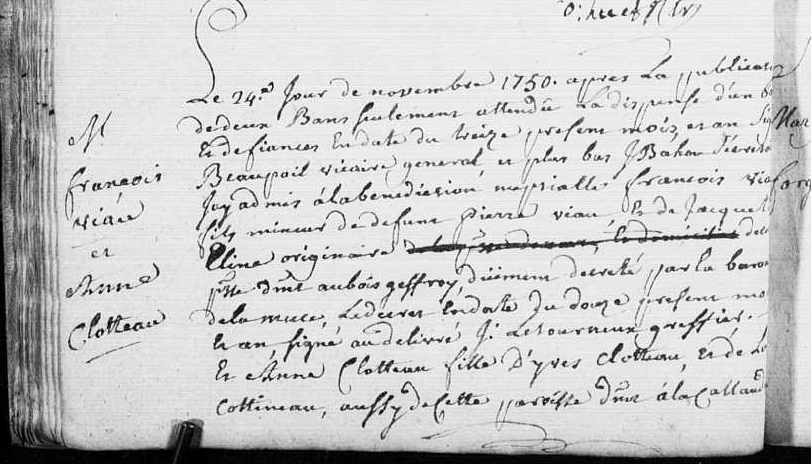 M.
francois
viau
et
Anne
Clotteau
Le 24.e Jour de novembre 1750. apres La publicatio
de deux Bans seulement attendü La dispense d'un
Et de fiances En date du treize present mois, et an Sig
Beaupoil vicaire general, et plus bas
Jay admis á la benediction nuptialle francois via
fils mineur de defunt pierre viau, Et de Jacquet
originaire
psse dmt au bois geffroy, düement decreté par la baron
de la muce, Le decret En date du douze present mo
Et an signé au delivré J. Letourneux greffier.
Et Anne Clotteau fille D'yves Clotteau, Et de
Cottineau, aussy de Cette paroisse dmt á la
Mar